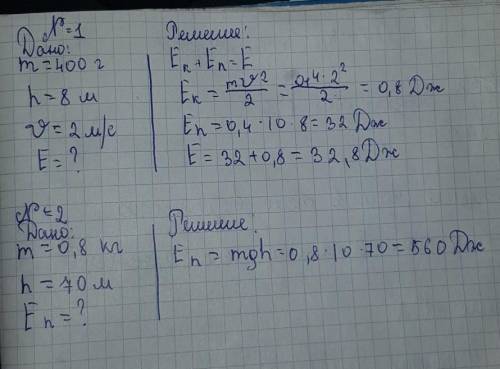 №=1
Дано:
m=400 г
h=8 м
v=2 м/с
E=?
Решение:
Eк+Eп=E
Eк=mv²/2=0,4·2²/2=0,8 Дж
Eп=0,4·10·8=32 Дж
E=32+0,8=32,8 Дж
№=2
Дано:
m=0,8 кг
h=70 м
Eп=?
Решение:
Eп=mgh=0,8·10·70=560 Дж